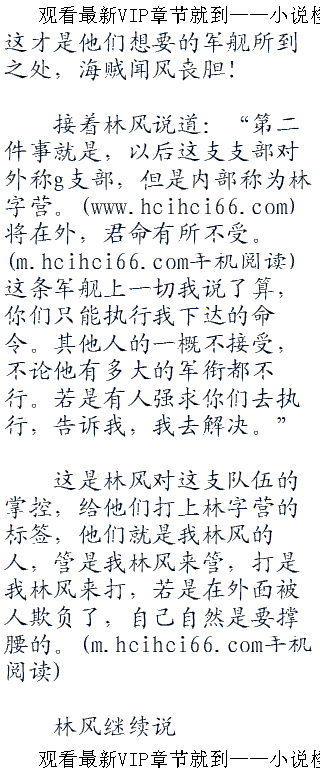 观看最新VIP章节就到——小说
这才是他们想要的军舰所到
之处，海贼闻风丧胆！
接着林风说道：“第二
件事就是，以后这支支部对
外称g支部，但是内部称为林
字营。(www.hcihci66.com)
将在外，君命有所不受。
(m.hcihci66.com手机阅读)
这条军舰上一切我说了算，
你们只能执行我下达的命
令。其他人的一概不接受，
不论他有多大的军衔都不
行。若是有人强求你们去执
行，告诉我，我去解决。”
这是林风对这支队伍的
掌控，给他们打上林字营的
标签，他们就是我林风的
人，管是我林风来管，打是
我林风来打，若是在外面被
人欺负了，自己自然是要撑
腰的。(m.hcihci66.com手机
阅读)
林风继续说
观看最新VIP章节就到——小说